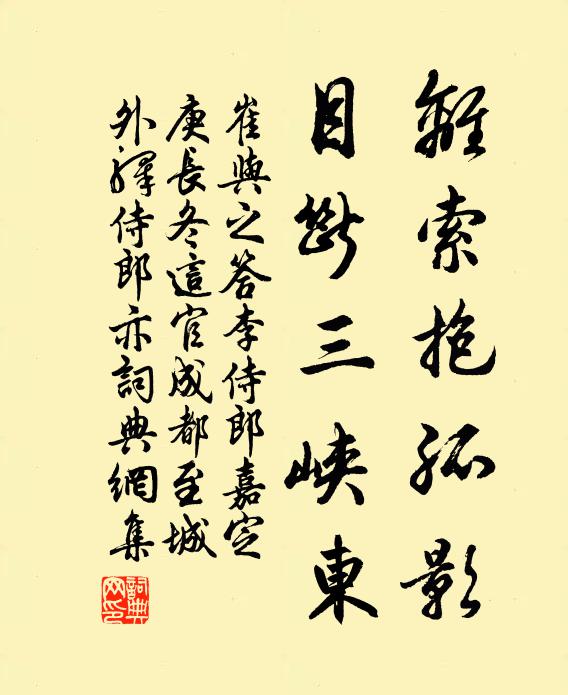 離索抱孤影
目斷三峽東
崔與之答李侍郎嘉定
庚長冬這官成都至城
外驛侍郎亦詞典網集
詞典網印